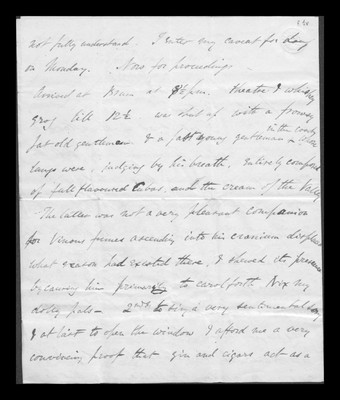 not fully understand. I enter my caveat for day
on Monday. Now for proceedings.
Arrived at at 8½ p.m. theatre & whisky
grog till 12½ was shut up with a frowsy
fat old gentleman & a fast young gentleman
in the coach whose
lungs were, judging by his breath, entirely composed
of full flavoured Cubas, and the cream of the Valley
The latter was not a very pleasant companion
for vinous fumes ascending into his cranium displaced
what reason had existed there, & shewed its presence
by causing him primarily to carol forth Nix my
dolly pals - 2ndly to sing a very sentimental song
& at last to open the window & afford me a very
convincing proof that gin and cigars act as a